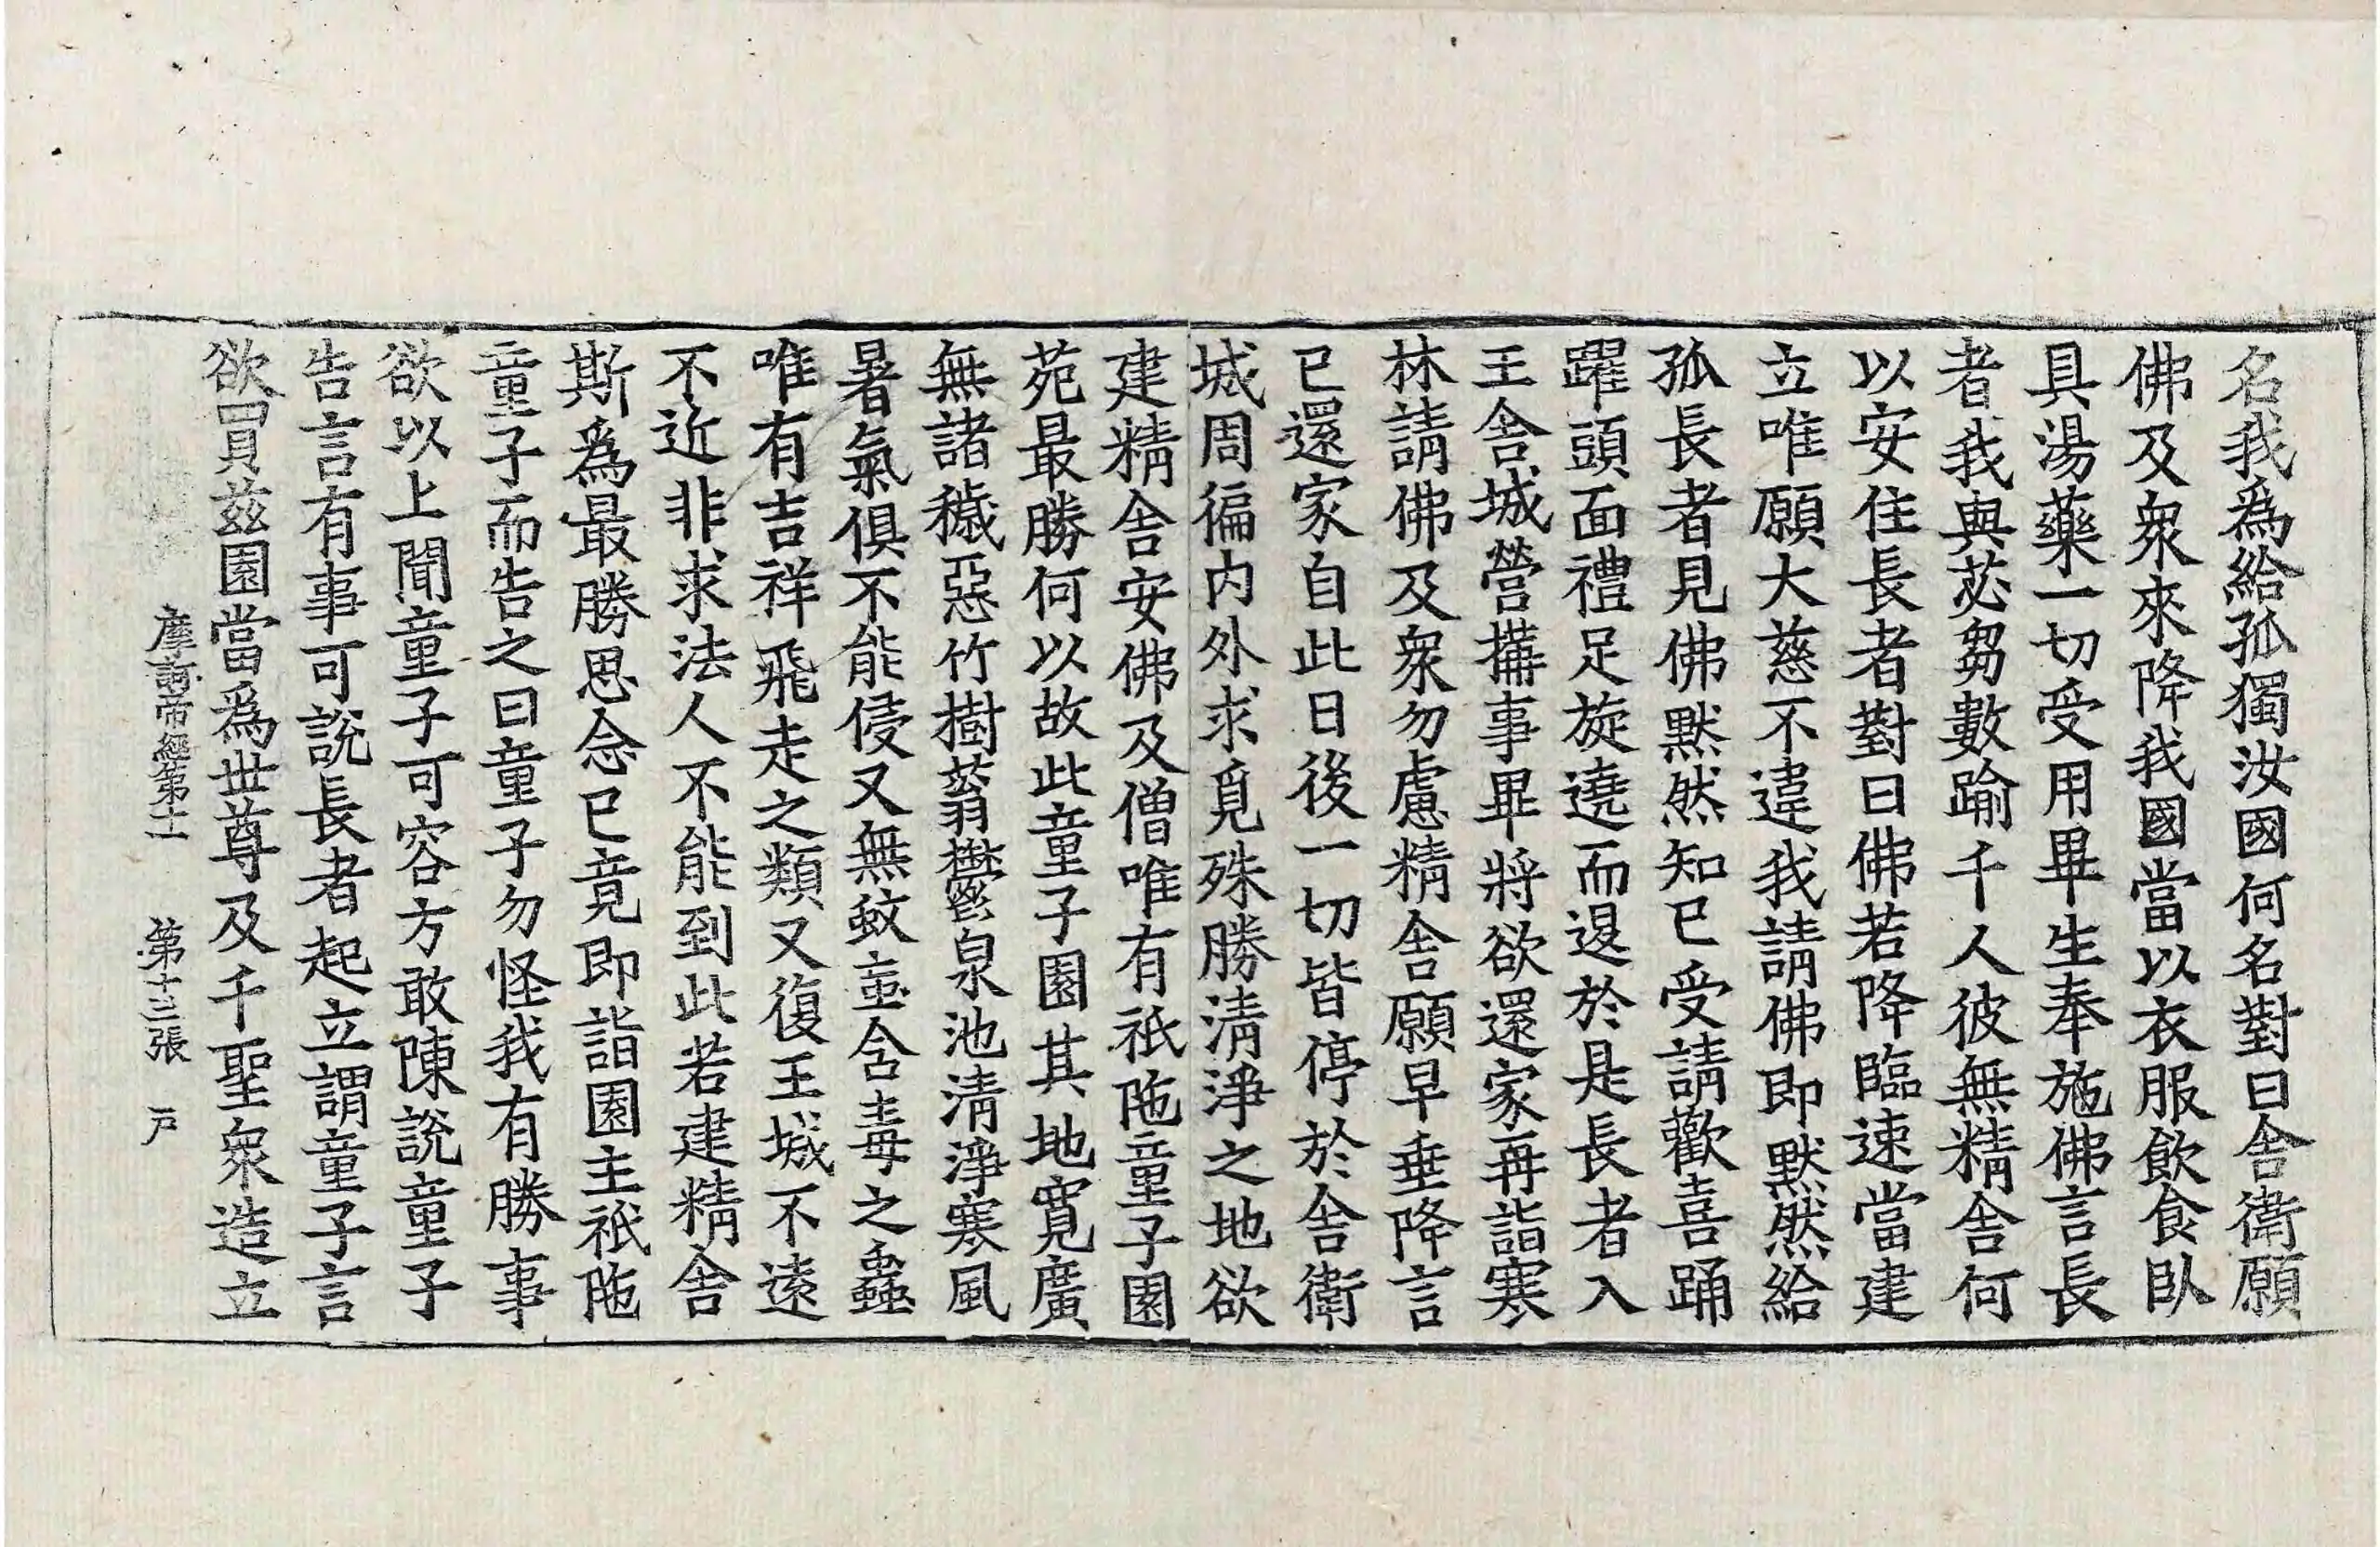 名我爲給孤獨汝國何名對曰舍衛願
佛及衆來降我國當以衣服飲食臥
具湯藥一切受用畢生奉施佛言長
者我與苾芻數踰千人彼無精舍何
以安住長者對曰佛若降臨速當建
立唯願大慈不違我請佛即默然給
孤長者見佛默然知已受請歡喜踊
躍頭面禮足旋遶而退於是長者入
王舍城營搆事畢將欲還家再詣寒
林請佛及衆勿慮精舍願早垂降言
已還家自此日後一切皆停於舍衛
城周徧内外求覓殊勝淸淨之地欲
建精舍安佛及僧唯有祇陁童子園
苑最勝何以故此童子園其地寬廣
無諸穢惡竹樹蓊鬱泉池淸淨寒風
暑氣俱不能侵又無蚊䖟含毒之蟲
唯有吉祥飛走之類又復王城不遠
不近非求法人不能到此若建精舍
斯爲最勝思念已竟即詣園主祇陁
童子而告之曰童子勿怪我有勝事
欲以上聞童子可容方敢陳說童子
告言有事可說長者起立謂童子言
欲買兹園當爲世尊及千聖衆造立
摩訶帝經第十一 第十三張 戸